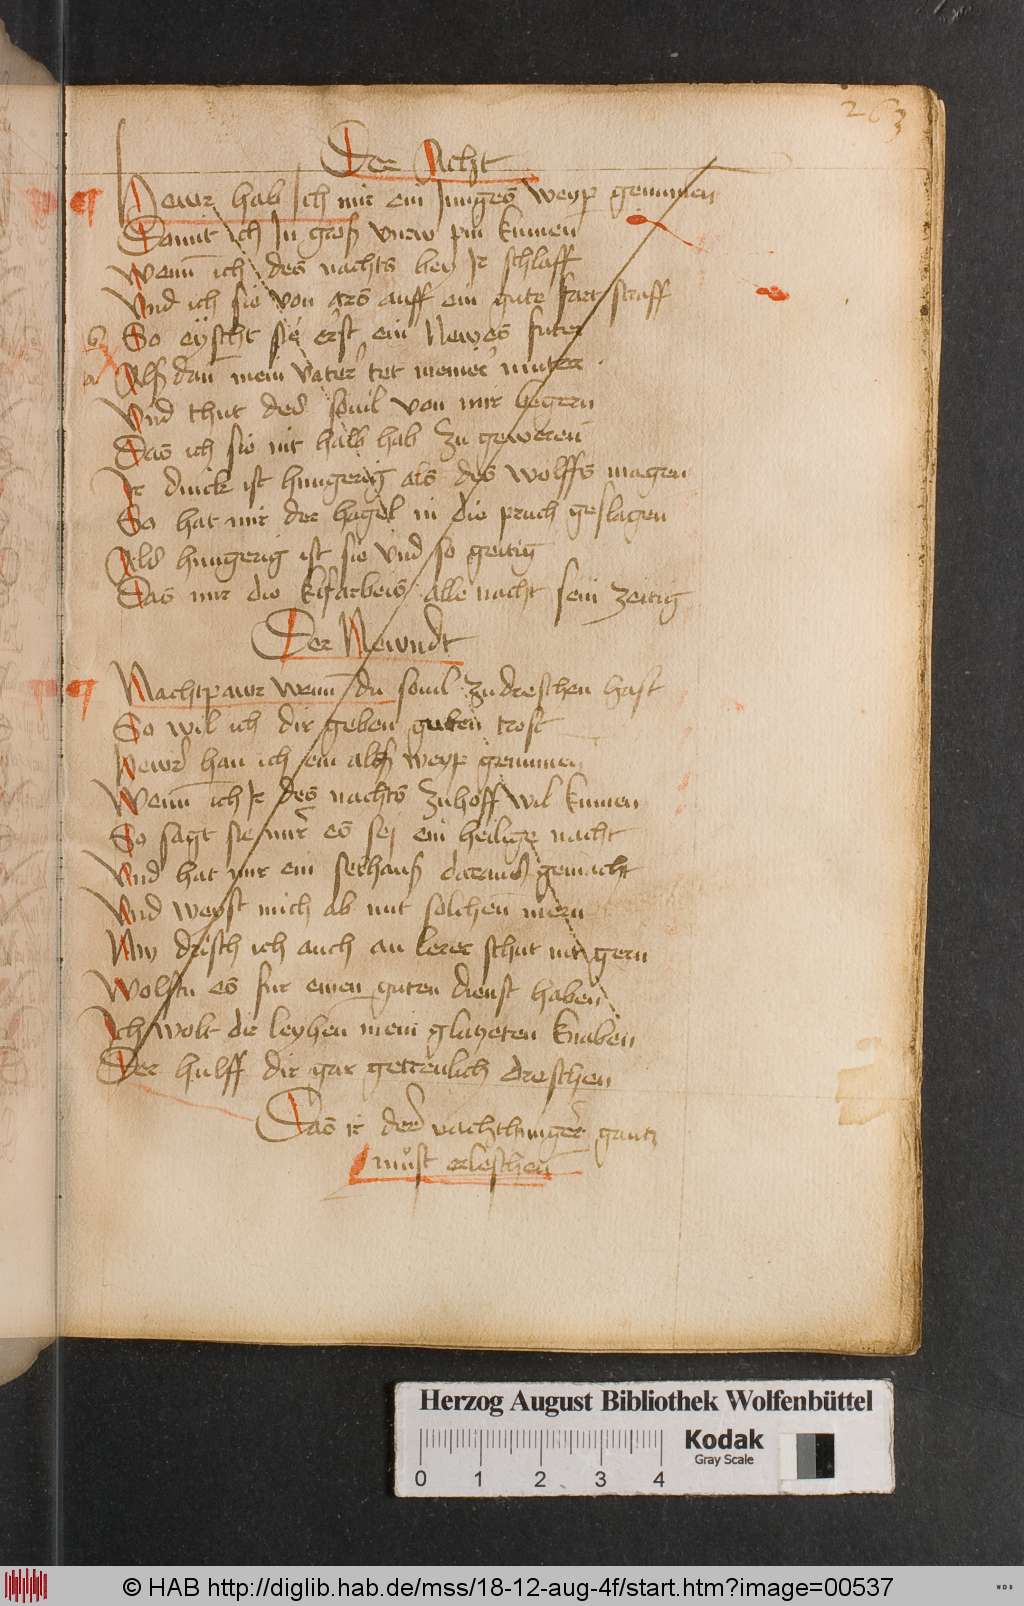 263
Der Acht
Hewr hab Ich mir ein Junges weyp genumen
Domit ich In groß vnrw pin kumen
Wenn ich des nachts bey Ir schlaff
Vnd ich sie von ars auff ein gute fart straff
b So eyscht sie erst ein Newes futer
a Alß dann mein vater tet meiner muter
Vnd thut des souil von mir begern
Das ich sie nit halb hab zu geweren
Ir dinck ist hungerig als des wolffs magen
So hat mir der hagel in die pruch geslagen
Als hungerig ist sie vnd so geitig
Das mir die kifarbeis alle nacht sein zeitig
Der Newndt
Nachtpawr wenn du souil zu dreschen hast
So wil ich dir geben guten trost
Hewr han ich ein alts weyp genumen
Wenn ich Ir des nachts zu hoff wil kumen
So sagt sie mir es sej ein heilige nacht
Vnd hat mir ein sethauß daraus gemacht
Vnd weyst mich ab mit solchen mern
Nw drisch ich auch an lerer schut nit gern
Wolstu es fur einen guten dienst haben
Ich wolt dir leyhen mein glatzeten knaben
Der hulff dir gar getreulich dreschen
Das ir der nachthunger gantz
must erleschen
Herzog August Bibliothek Wolfenbüttel
Kodak
Gray Scale
0 1 2 3 4
© HAB http://diglib.hab.de/mss/18-12-aug-4f/start.htm?image=00537